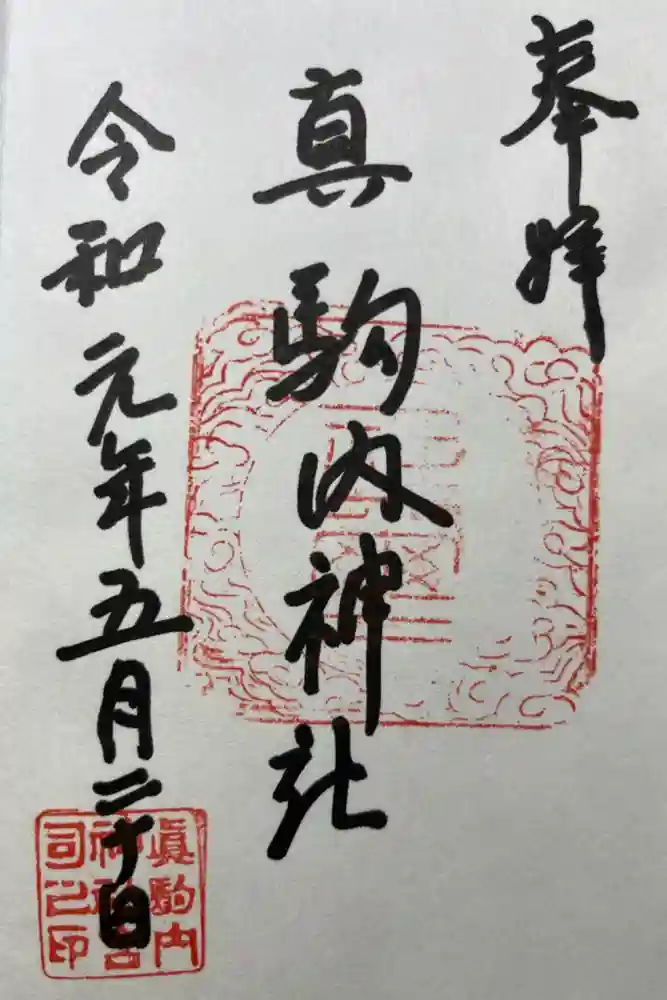 奉拝
真駒内神社
令和元年五月二十日
眞駒内
神社宮
司之印